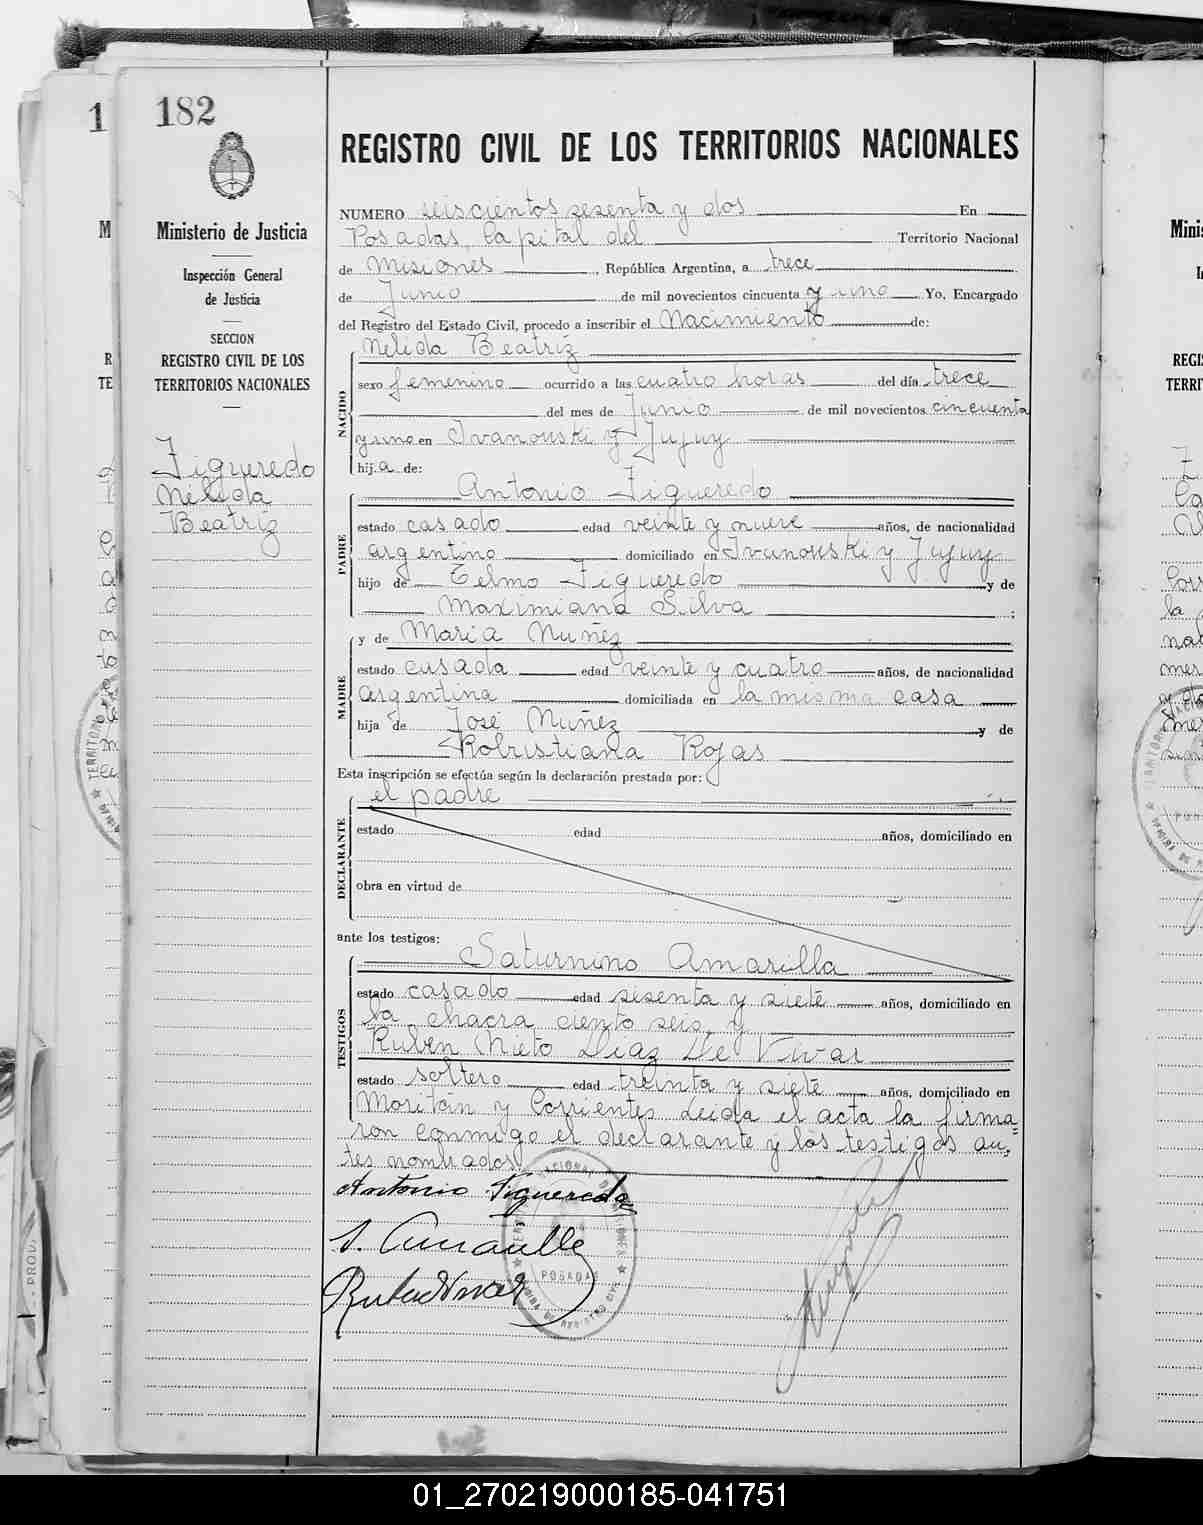 182
Ministerio de Justicia
Inspección General
de Justicia
SECCION
REGISTRO CIVIL DE LOS
TERRITORIOS NACIONALES
Figueredo
Nélida
Beatriz
REGISTRO CIVIL DE LOS TERRITORIOS NACIONALES
NUMERO seiscientos sesenta y dos En
Posadas, Capital del Territorio Nacional
de Misiones, República Argentina, a trece
de Junio de mil novecientos cincuenta y uno Yo, Encargado
del Registro del Estado Civil, procedo a inscribir el Nacimiento de:
NACIDO
Nélida Beatriz
sexo femenino ocurrido a las cuatro horas del día trece
del mes de Junio de mil novecientos cincuenta
y uno en Ivanouski y Jujuy
hij a de:
PADRE
Antonio Figueredo
estado casado edad veinte y nueve años, de nacionalidad
argentino domiciliado en Ivanouski y Jujuy
hijo de Telmo Figueredo y de
Maximiana Silva ;
MADRE
y de María Nuñez
estado casada edad veinte y cuatro años, de nacionalidad
argentina domiciliada en la misma casa
hija de José Nuñez y de
Robristiana Rojas
Esta inscripción se efectúa según la declaración prestada por:
DECLARANTE
el padre
estado edad años, domiciliado en
obra en virtud de
ante los testigos:
TESTIGOS
Saturnino Amarilla
estado casado edad sesenta y siete años, domiciliado en
la chacra ciento seis, y
Rubén Nieto Diaz De Vivar
estado soltero edad treinta y siete años, domiciliado en
Moritán y Corrientes Leida el acta la firma=
ron conmigo el declarante y los testigos an-
tes nombrados.
Antonio Figueredo
S. Amarilla
POSADAS
01_270219000185-041751